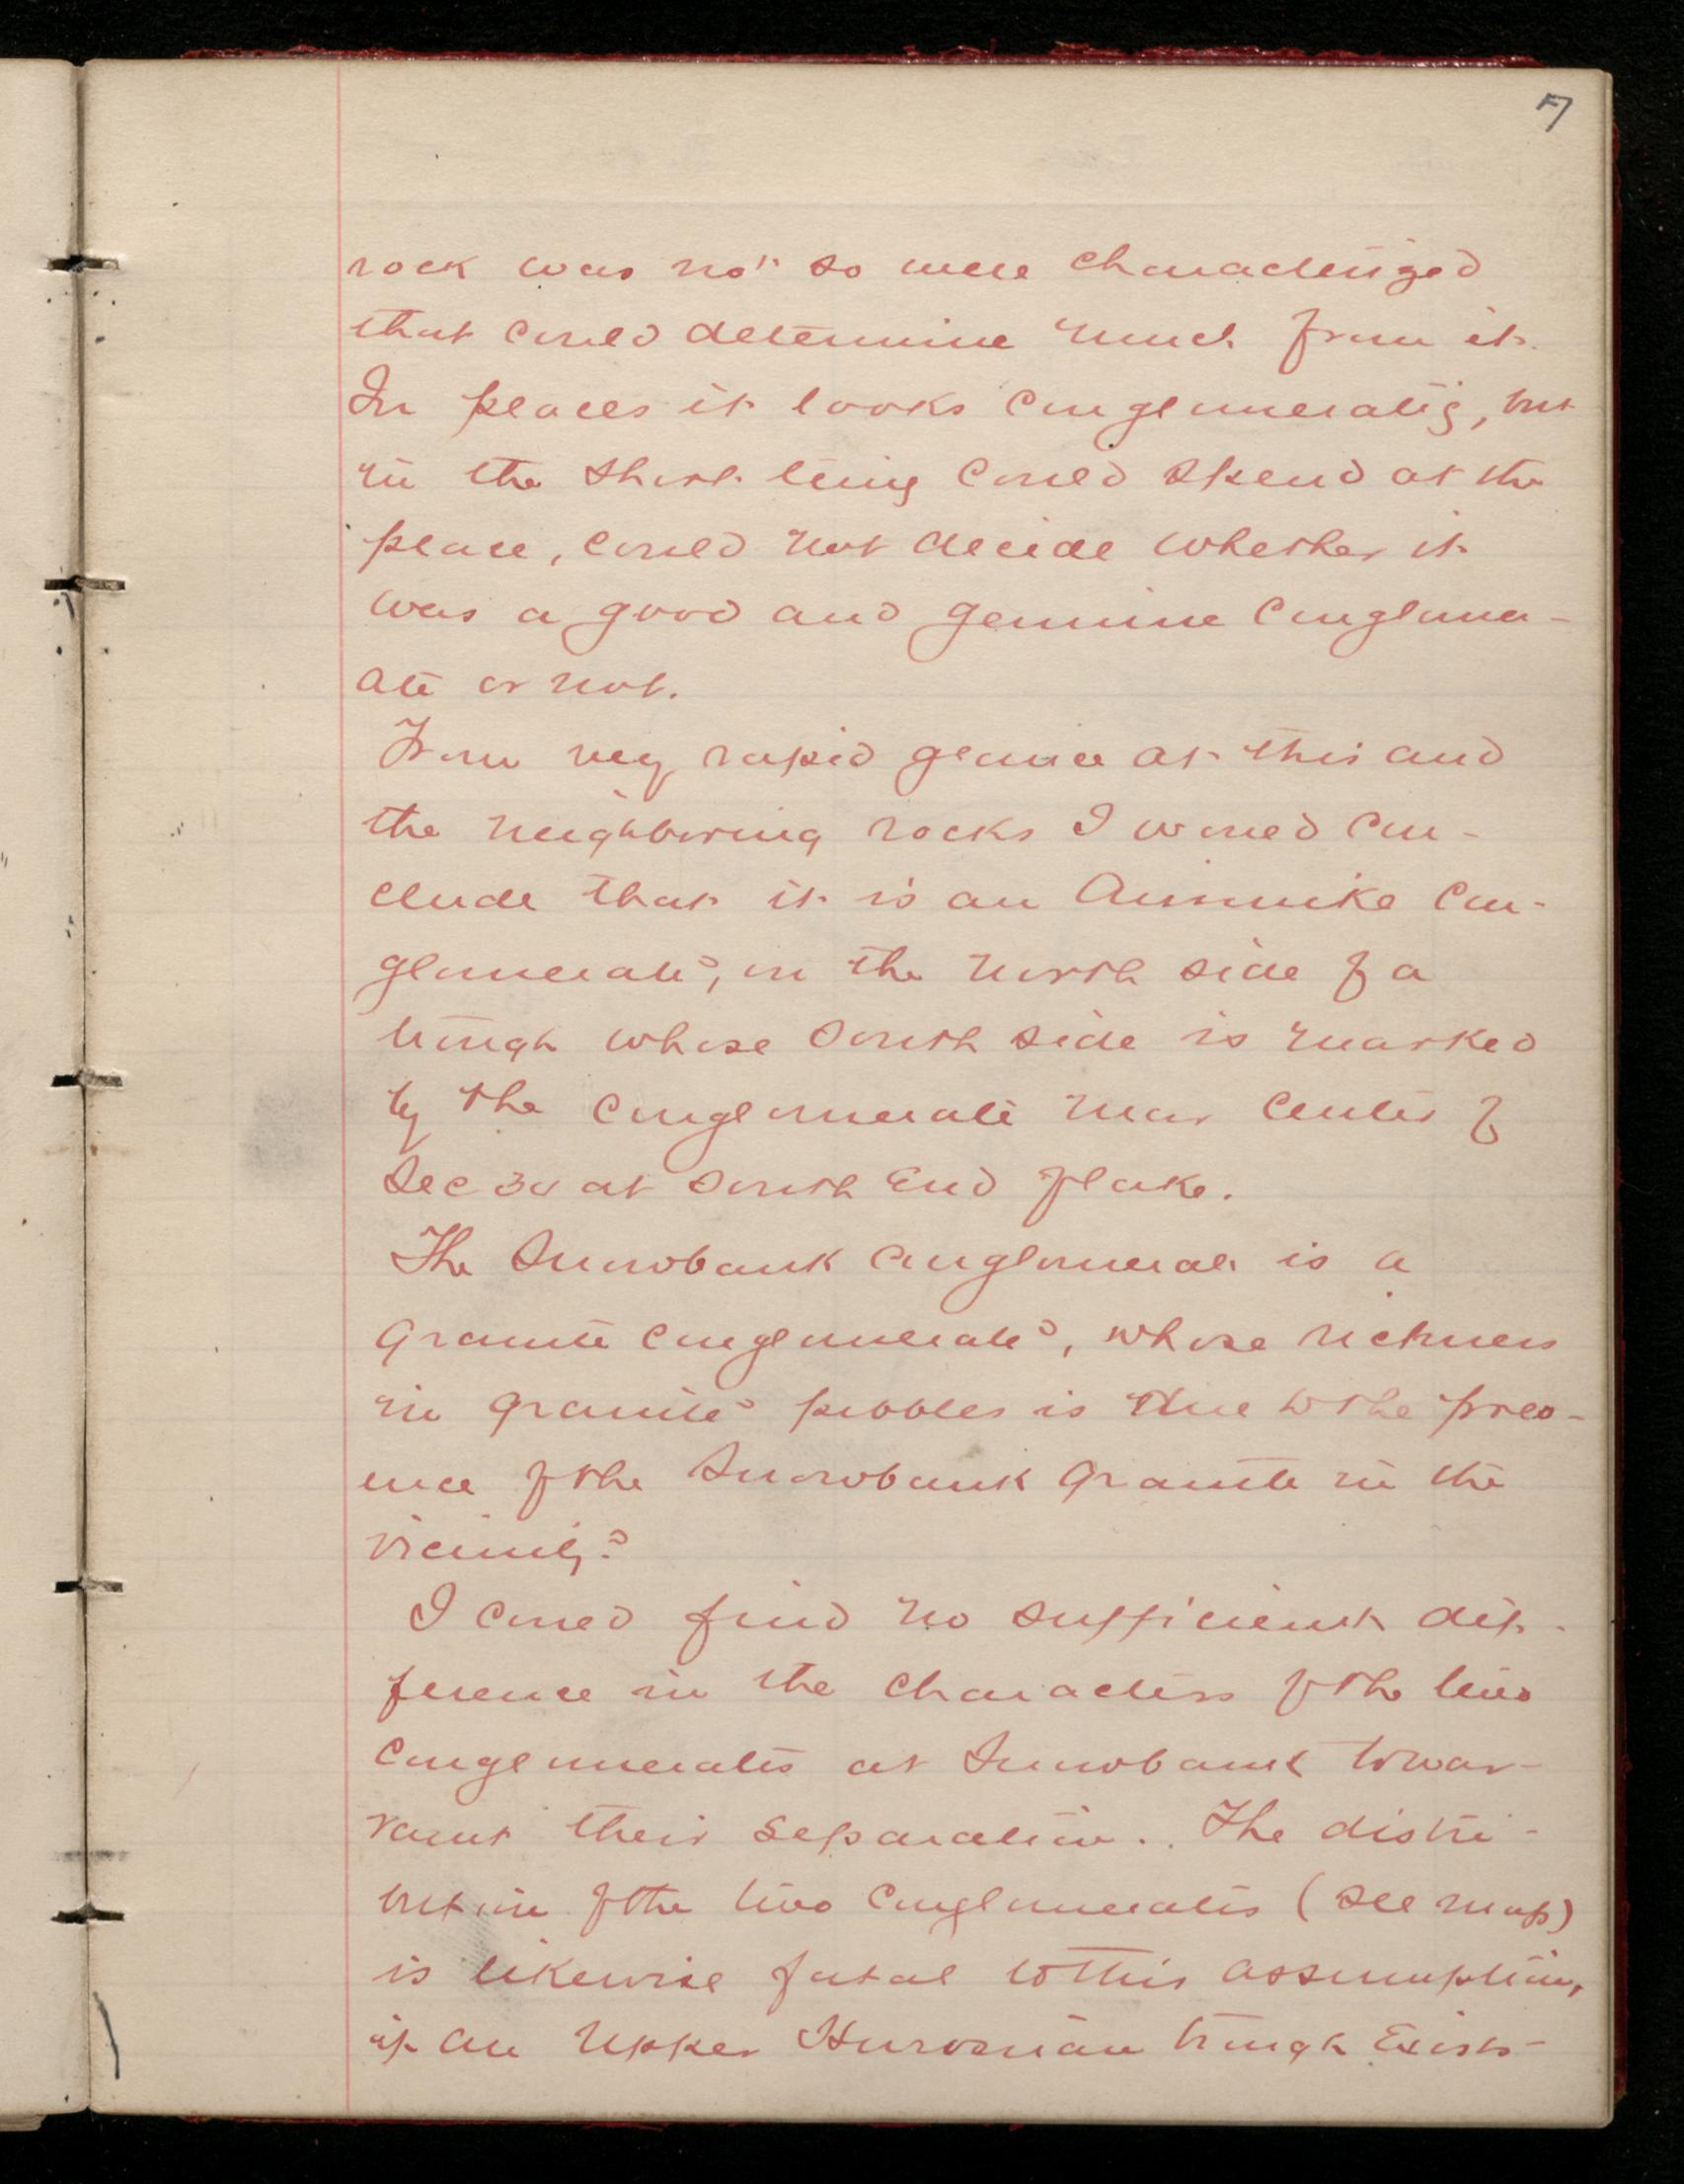 7
rock was not so well characterized
that could determine much from it.
In places it looks conglomeratic, but
in the short time could spend at the
place, could not decide whether it
was a good and genuine conglomer-
ate or not.
From very rapid glance at this and
the neighboring rocks I would con-
clude that it is an Animike con-
glomerate, on the north side of a
trough whose south side is marked
by the conglomerate near center of
Sec 30 at south end of lake.
The Snowbank conglomerate is a
granite conglomerate, whose richness
in granite pebbles is due to the pres-
ence of the Snowbank granite in the
vicinity?
I could find no sufficient dif-
ference in the characters of the two
conglomerates at Snowbank to war-
rant their separation. The distri-
bution of the two conglomerates (see map)
is likewise fatal to this assumption,
if an Upper Huronian trough exists